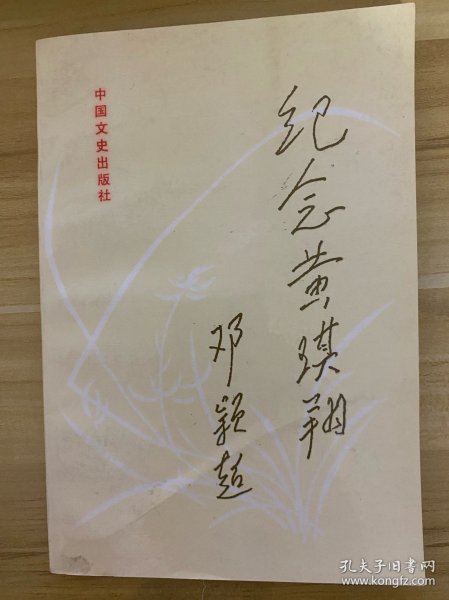 纪念黄琪翔
邓颖超
中国文史出版社
孔夫子旧书网
www.kongfz.com